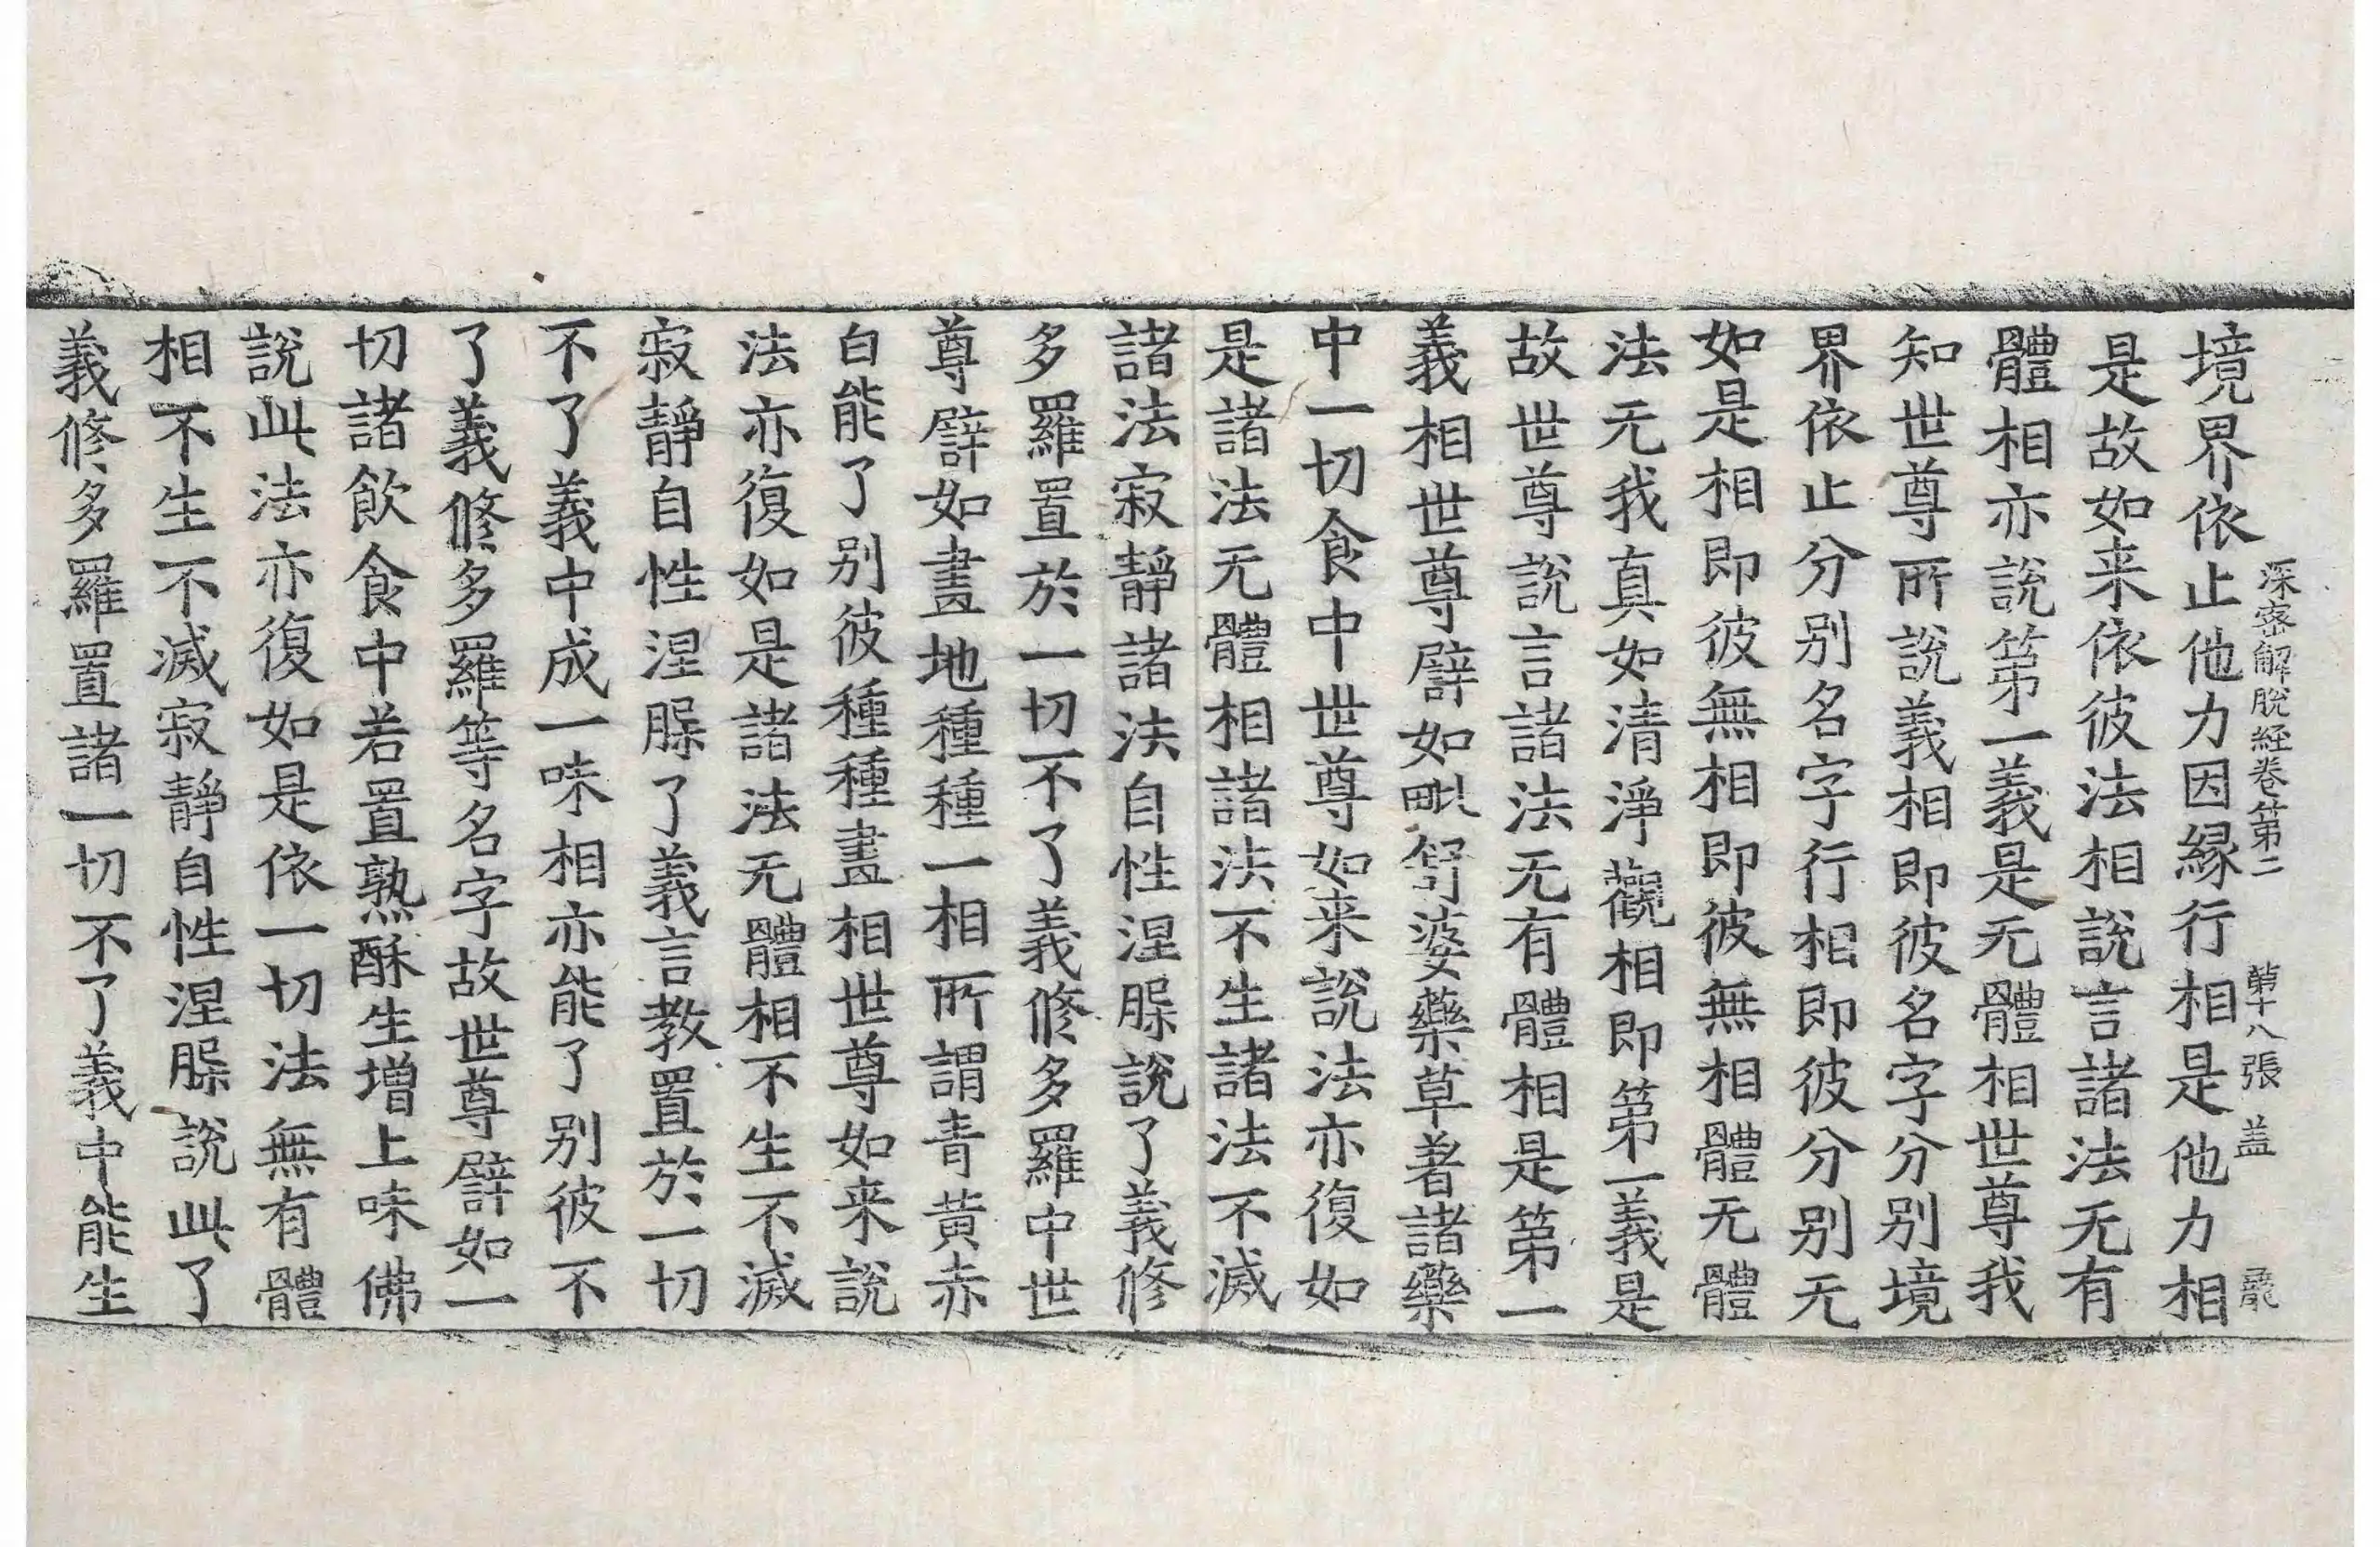 深密解脫経卷第二 第十八張 盖
境界依止他力因縁行相是他力相
是故如来依彼法相說言諸法无有
體相亦說第一義是无體相世尊我
知世尊所說義相即彼名字分别境
界依止分别名字行相即彼分别无
如是相即彼無相即彼無相體无體
法无我真如清淨觀相即第一義是
故世尊說言諸法无有體相是第一
義相世尊譬如毗舒婆藥草著諸藥
中一切食中世尊如来說法亦復如
是諸法无體相諸法不生諸法不滅
諸法寂靜諸法自性涅槃說了義修
多羅置於一切不了義修多羅中世
尊譬如畫地種種一相所謂青黃赤
白能了别彼種種畫相世尊如来說
法亦復如是諸法无體相不生不滅
寂靜自性涅槃了義言教置於一切
不了義中成一味相亦能了别彼不
了義修多羅等名字故世尊譬如一
切諸飲食中若置熟酥生增上味佛
說此法亦復如是依一切法無有體
相不生不滅寂靜自性涅槃說此了
義修多羅置諸一切不了義中能生